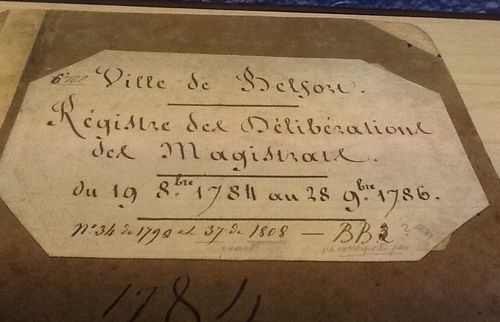 Ville de Belfort.
Régistre des Délibérations
des Magistrats.
du 19 8.bre 1784 au 28 9.bre 1786.
N° 34 de 1792 et 37 de 1808 — BB 2 ?
ne correspond pas
1784